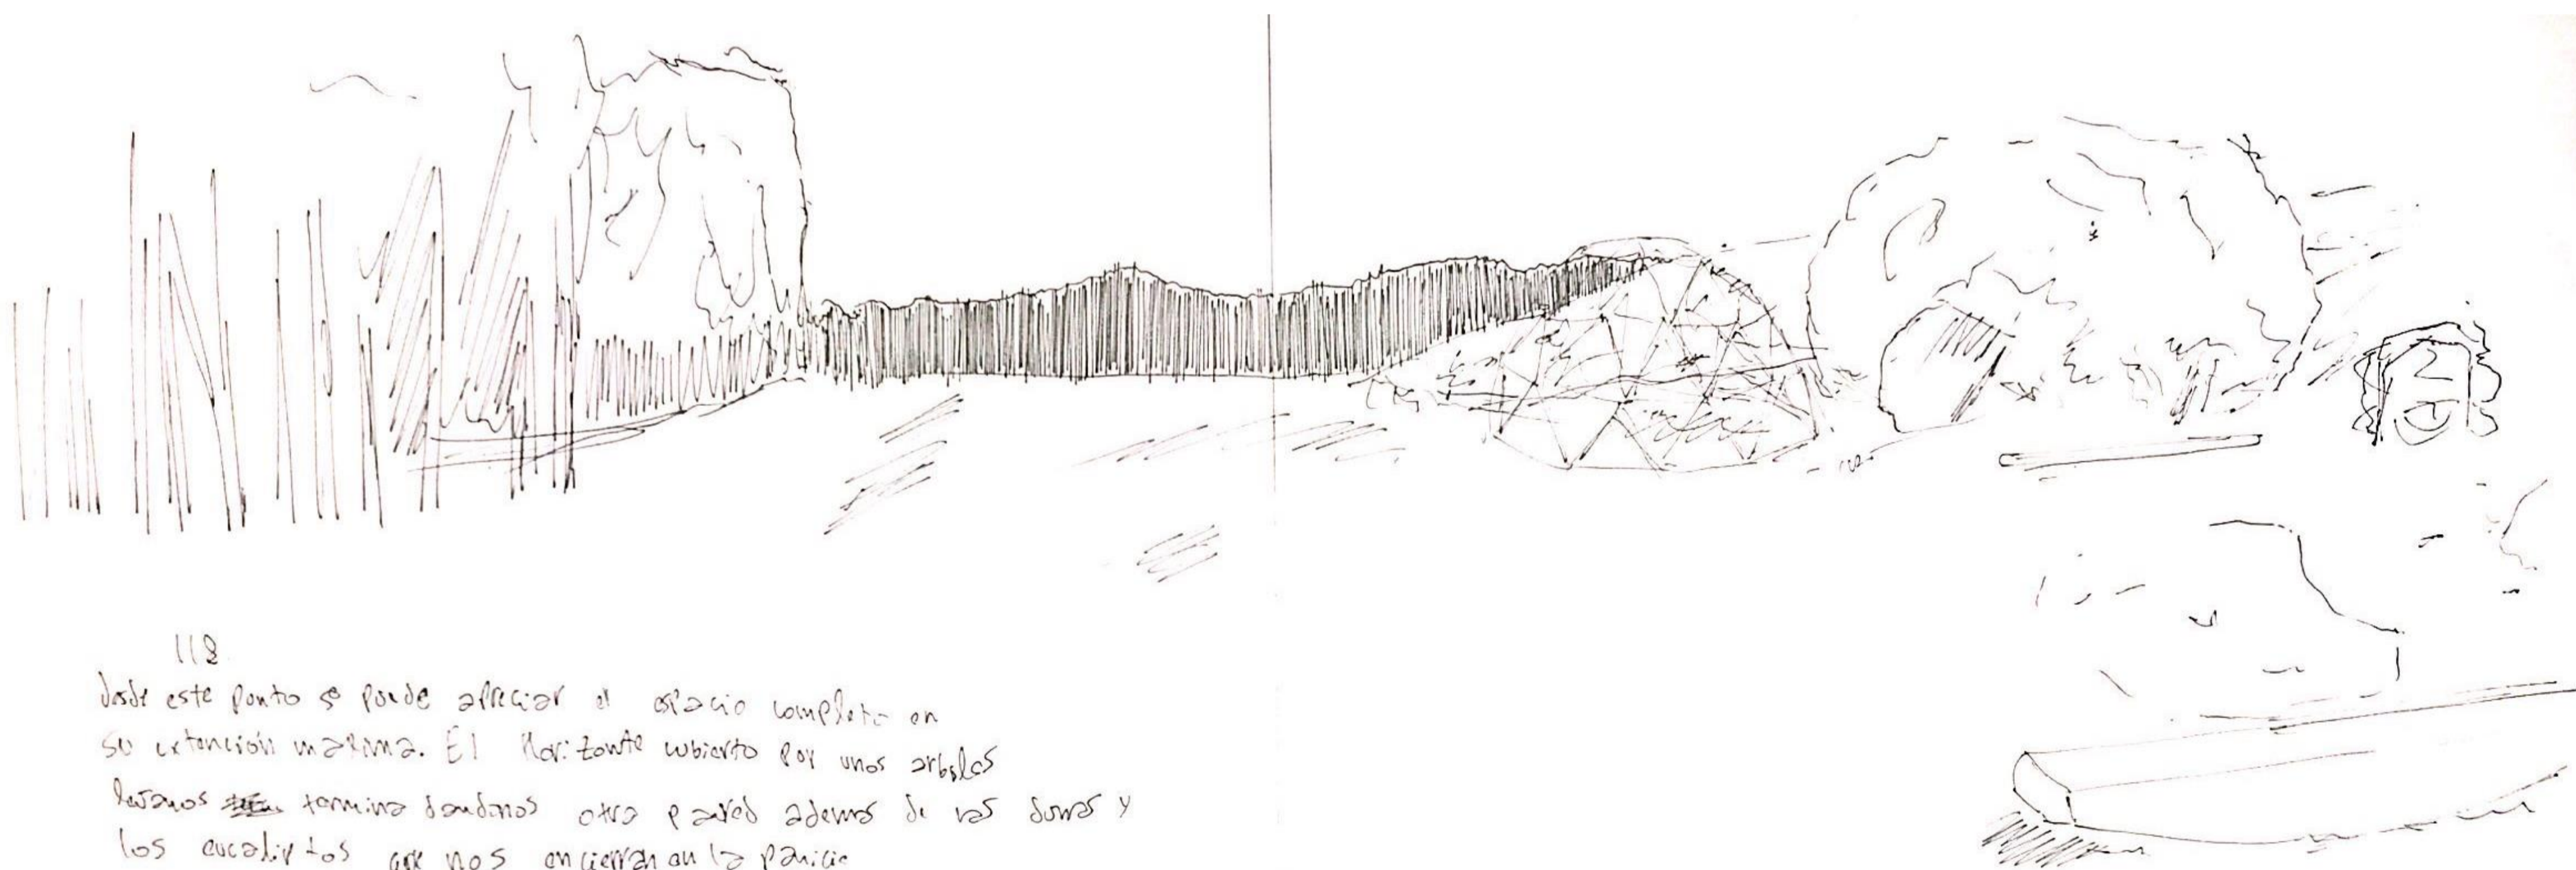 118.
desde este punto se puede apreciar el espacio completo en
su extención maxima. El Horizonte cubierto por unos arboles
lejanos termina dandonos otra pared ademas de las dunas y
los eucaliptos que nos encierran en la panicie